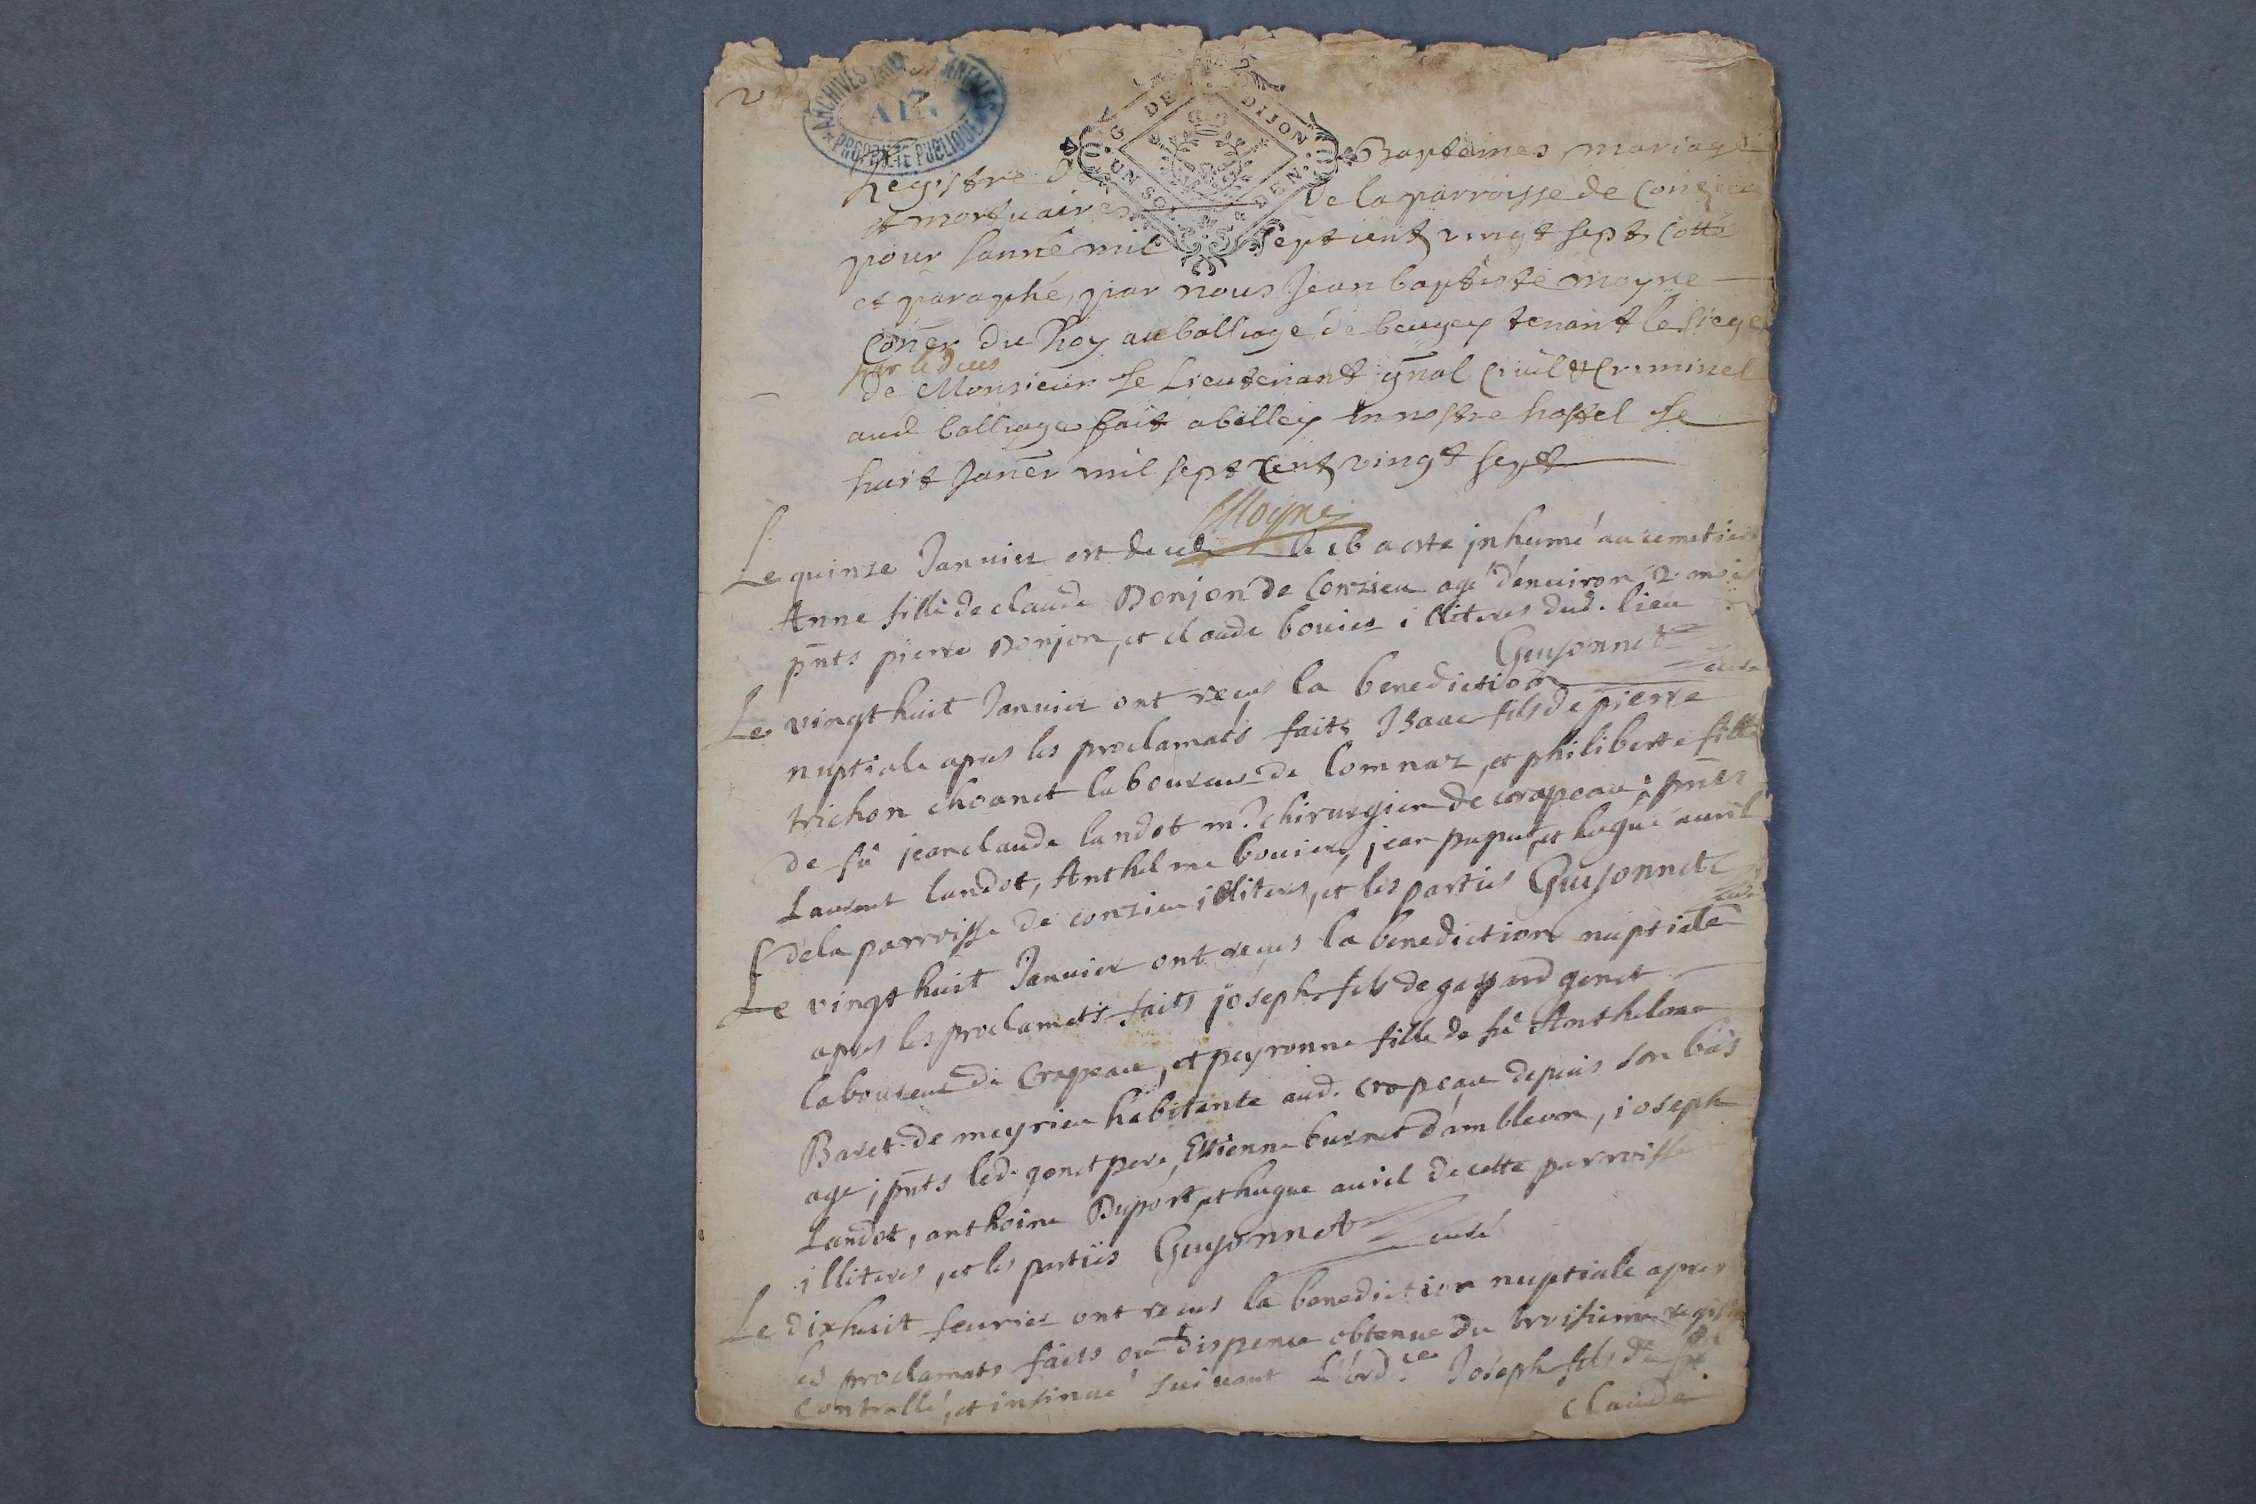 2
ARCHIVES DEPARTEMENTALES
AIN
PROPRIETE PUBLIQUE
G. DE DIJON
UN SOL
DEN.
Registre De Baptemes, mariage
et mortuaires De la parroisse de Conzieu
pour lanné mil Sept cent vingt sept, Cotté
et paraphé, par nous Jean baptiste moyne
Coner du Roy au balliage de beugey tenant le siege
par le deces
de Monsieur le Lieutenant gnal Civil et Criminel
aud balliage fait a belley en nostre hostel le
huit Janer mil sept Cent vingt sept
Moyne
Le quinze Janvier est decede le 16 a este inhumé au cimetiere
Anne fille de claude Donjon de Conzieu agé d'environ 2 mois
pnts pierre Donjon, et claude bouier illiteres dud. lieu
Guyonnet
curé
Le vingt huit Janvier ont recus la benediction
nuptiale apres les proclamats faits Isaac fils de pierre
trichon choanet laboureur de lomnaz, et philiberte fille
de fû jean claude landot me chirurgien de crapeau à pnts
Laurent landot, Anthelme bouier, jean pupat, et hugue auril
de la parroisse de conzieu illiteres, et les parties Guyonnet
curé
Le vingt huit Janvier ont recus la benediction nuptiale
apres les proclamats faits joseph fils de gaspard genet
laboureur de Crapeau, et peyronne fille de fû Anthelme
Baret de meyrieu habitente aud. crapeau depuis son bas
age; pnts led. genet pere, Estienne burnet d'ambleon, joseph
Landot, anthoine Duport, et hugue auril de cette parroisse
illiteres, et les parties Guyonnet curé
Le dixhuit feurier ont recus la benediction nuptiale apres
les proclamats faits ou dispence obtenue du troisieme
Contrallé, et insinué suivant L'ord.ce Joseph fils de fû
claude